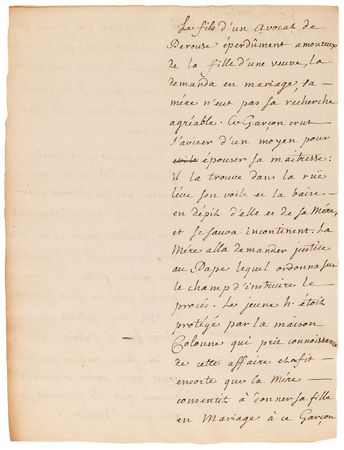 Le fils d'un Avocat de
Perouse éperdûment amoureux
de la fille d'une veuve, la
demanda en mariage, sa
mére n'eut pas sa recherche
agréable. Ce Garçon crut
s'aviser d'un moyen pour
épouser sa maitresse:
il la trouve dans la ruë
léve son voile et la baise
en dépit d'elle et de sa Mére,
et se sauva incontinent. La
Mére alla demander justice
au Pape lequel ordonna sur
le champ d'instruire le
procés. Le jeune h. étoit
protégé par la maison
Colonne qui prit connoissance
de cette affaire et fit
ensorte que la Mére
consentit à donner sa fille
en Mariage à ce Garçon